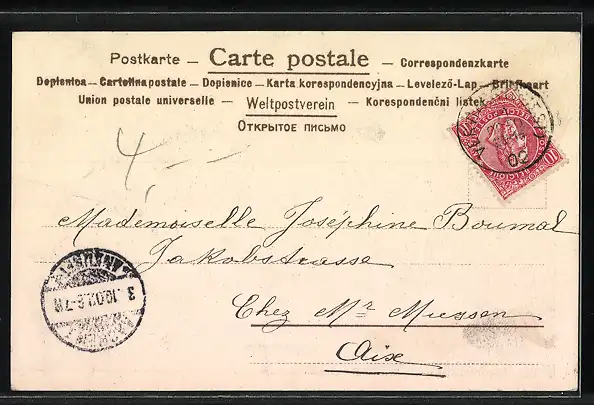 Postkarte — Carte postale — Correspondenzkarte
Dopisnica — Cartolina postale — Dopisnice — Karta korespondencyjna — Levelező-Lap — Briefkaart
Union postale universelle — Weltpostverein — Korespondenční listek
Открытое письмо
4.-
02
Mademoiselle Joséphine Boumal
Jakobstrasse
Chez Mr Mussen
Aix
ANKUNFT
3.10.02.6-7N